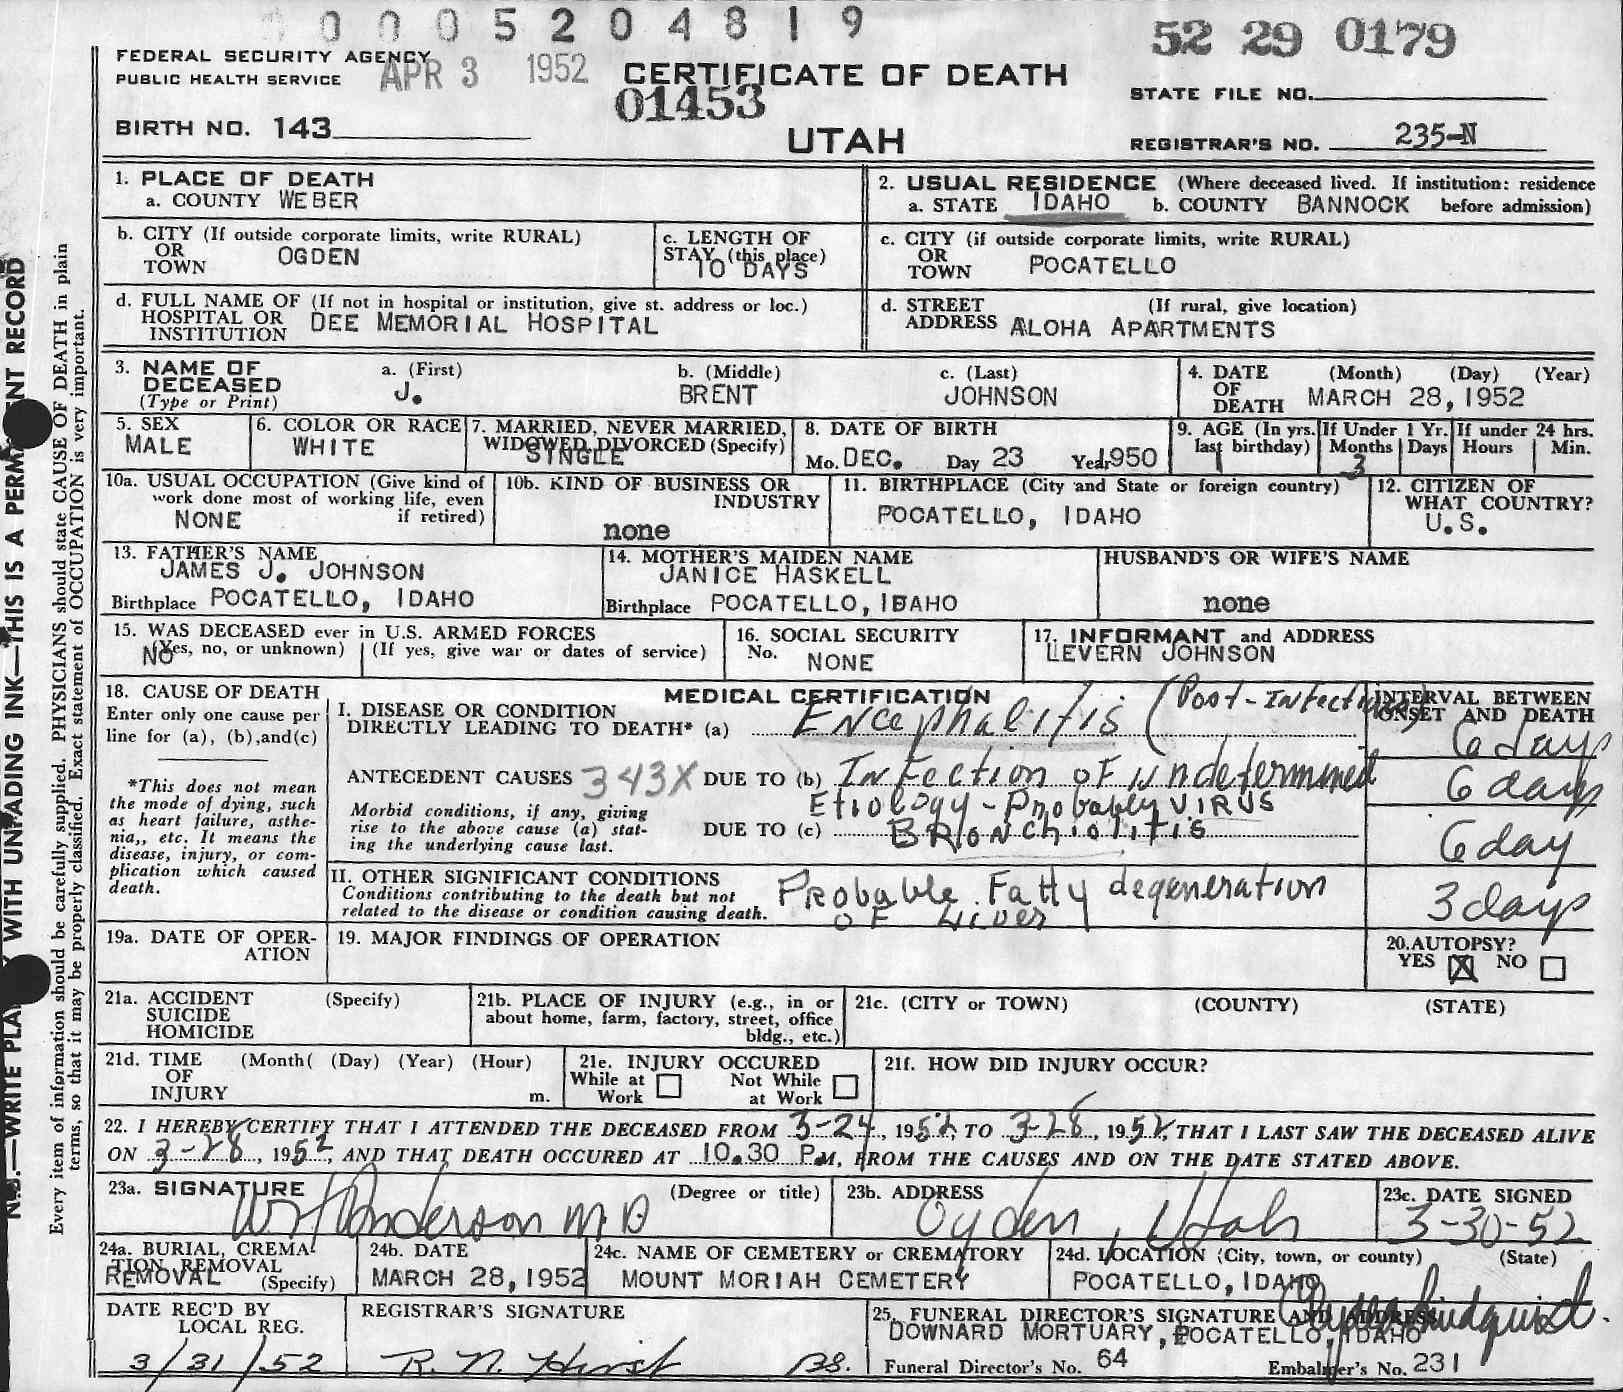 0 0 0 5 2 0 4 8 1 9
52 29 0179
FEDERAL SECURITY AGENCY
PUBLIC HEALTH SERVICE
APR 3 1952
CERTIFICATE OF DEATH
01453
UTAH
STATE FILE NO.
BIRTH NO. 143
REGISTRAR'S NO. 235-N
1. PLACE OF DEATH
a. COUNTY WEBER
2. USUAL RESIDENCE (Where deceased lived. If institution: residence
a. STATE IDAHO b. COUNTY BANNOCK before admission)
b. CITY (If outside corporate limits, write RURAL)
OR
TOWN OGDEN
c. LENGTH OF
STAY (this place)
10 DAYS
c. CITY (if outside corporate limits, write RURAL)
OR
TOWN POCATELLO
d. FULL NAME OF (If not in hospital or institution, give st. address or loc.)
HOSPITAL OR
INSTITUTION DEE MEMORIAL HOSPITAL
d. STREET (If rural, give location)
ADDRESS ALOHA APARTMENTS
3. NAME OF
DECEASED
(Type or Print)
a. (First) b. (Middle) c. (Last)
J. BRENT JOHNSON
4. DATE (Month) (Day) (Year)
OF
DEATH MARCH 28, 1952
5. SEX
MALE
6. COLOR OR RACE
WHITE
7. MARRIED, NEVER MARRIED,
WIDOWED, DIVORCED (Specify)
SINGLE
8. DATE OF BIRTH
Mo. DEC. Day 23 Year 1950
9. AGE (In yrs. last birthday)
1
If Under 1 Yr.
Months Days
3
If under 24 hrs.
Hours Min.
10a. USUAL OCCUPATION (Give kind of
work done most of working life, even
if retired)
NONE
10b. KIND OF BUSINESS OR
INDUSTRY
none
11. BIRTHPLACE (City and State or foreign country)
POCATELLO, IDAHO
12. CITIZEN OF
WHAT COUNTRY?
U.S.
13. FATHER'S NAME
JAMES J. JOHNSON
Birthplace POCATELLO, IDAHO
14. MOTHER'S MAIDEN NAME
JANICE HASKELL
Birthplace POCATELLO, IDAHO
HUSBAND'S OR WIFE'S NAME
none
15. WAS DECEASED ever in U.S. ARMED FORCES
(Yes, no, or unknown) (If yes, give war or dates of service)
NO
16. SOCIAL SECURITY
No. NONE
17. INFORMANT and ADDRESS
LEVERN JOHNSON
18. CAUSE OF DEATH
Enter only one cause per
line for (a), (b),and(c)
*This does not mean
the mode of dying, such
as heart failure, asthe-
nia,, etc. It means the
disease, injury, or com-
plication which caused
death.
MEDICAL CERTIFICATION
INTERVAL BETWEEN
ONSET AND DEATH
I. DISEASE OR CONDITION
DIRECTLY LEADING TO DEATH* (a) Encephalitis (Post-Infectious)
6 days
ANTECEDENT CAUSES 343X DUE TO (b) Infection of undetermined
Etiology - Probably VIRUS
6 days
Morbid conditions, if any, giving
rise to the above cause (a) stat-
ing the underlying cause last.
DUE TO (c) BRONCHIOLITIS
6 day
II. OTHER SIGNIFICANT CONDITIONS
Conditions contributing to the death but not
related to the disease or condition causing death.
Probable Fatty degeneration
of Liver
3 days
19a. DATE OF OPER-
ATION
19. MAJOR FINDINGS OF OPERATION
20. AUTOPSY?
YES X NO
21a. ACCIDENT (Specify)
SUICIDE
HOMICIDE
21b. PLACE OF INJURY (e.g., in or
about home, farm, factory, street, office
bldg., etc.)
21c. (CITY or TOWN) (COUNTY) (STATE)
21d. TIME (Month( (Day) (Year) (Hour)
OF
INJURY m.
21e. INJURY OCCURED
While at Work Not While at Work
21f. HOW DID INJURY OCCUR?
22. I HEREBY CERTIFY THAT I ATTENDED THE DECEASED FROM 3-24, 1952, TO 3-28, 1952, THAT I LAST SAW THE DECEASED ALIVE
ON 3-28, 1952, AND THAT DEATH OCCURED AT 10.30 P.M, FROM THE CAUSES AND ON THE DATE STATED ABOVE.
23a. SIGNATURE (Degree or title)
Anderson M D
23b. ADDRESS
Ogden, Utah
23c. DATE SIGNED
3-30-52
24a. BURIAL, CREMA-
TION, REMOVAL
REMOVAL (Specify)
24b. DATE
MARCH 28, 1952
24c. NAME OF CEMETERY or CREMATORY
MOUNT MORIAH CEMETERY
24d. LOCATION (City, town, or county) (State)
POCATELLO, IDAHO
DATE REC'D BY
LOCAL REG.
3/31/52
REGISTRAR'S SIGNATURE
R. N. Hirst
25. FUNERAL DIRECTOR'S SIGNATURE AND ADDRESS
Lindquist
DOWNARD MORTUARY, POCATELLO, IDAHO
Funeral Director's No. 64 Embalmer's No. 231
N.B.—WRITE PLAINLY WITH UNFADING INK—THIS IS A PERMANENT RECORD
Every item of information should be carefully supplied. PHYSICIANS should state CAUSE OF DEATH in plain
terms, so that it may be properly classified. Exact statement of OCCUPATION is very important.